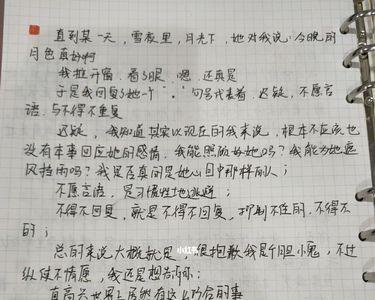 直到某一天，雪夜里，月光下，她对我说：今晚的
月色真好啊
我推开窗，看了眼，嗯，还真是
于是我回复了她一个“。”句号代表着，迟疑，不愿言
语，与不得不重复
迟疑，我知道其实以现在的我来说，根本不应该也
没有本事回应她的感情，我能照顾好她吗？我能为她遮
风挡雨吗？我是否真的是她心目中那样的人；
不愿言语，是习惯性地逃避；
不得不回复，就是不得不回复，抑制不住的，不得不
的；
总的来说大概就是，很抱歉我是个胆小鬼，不过
纵使不情愿，我还是想告诉你：
真高兴世界上居然有这么巧合的事
小红书